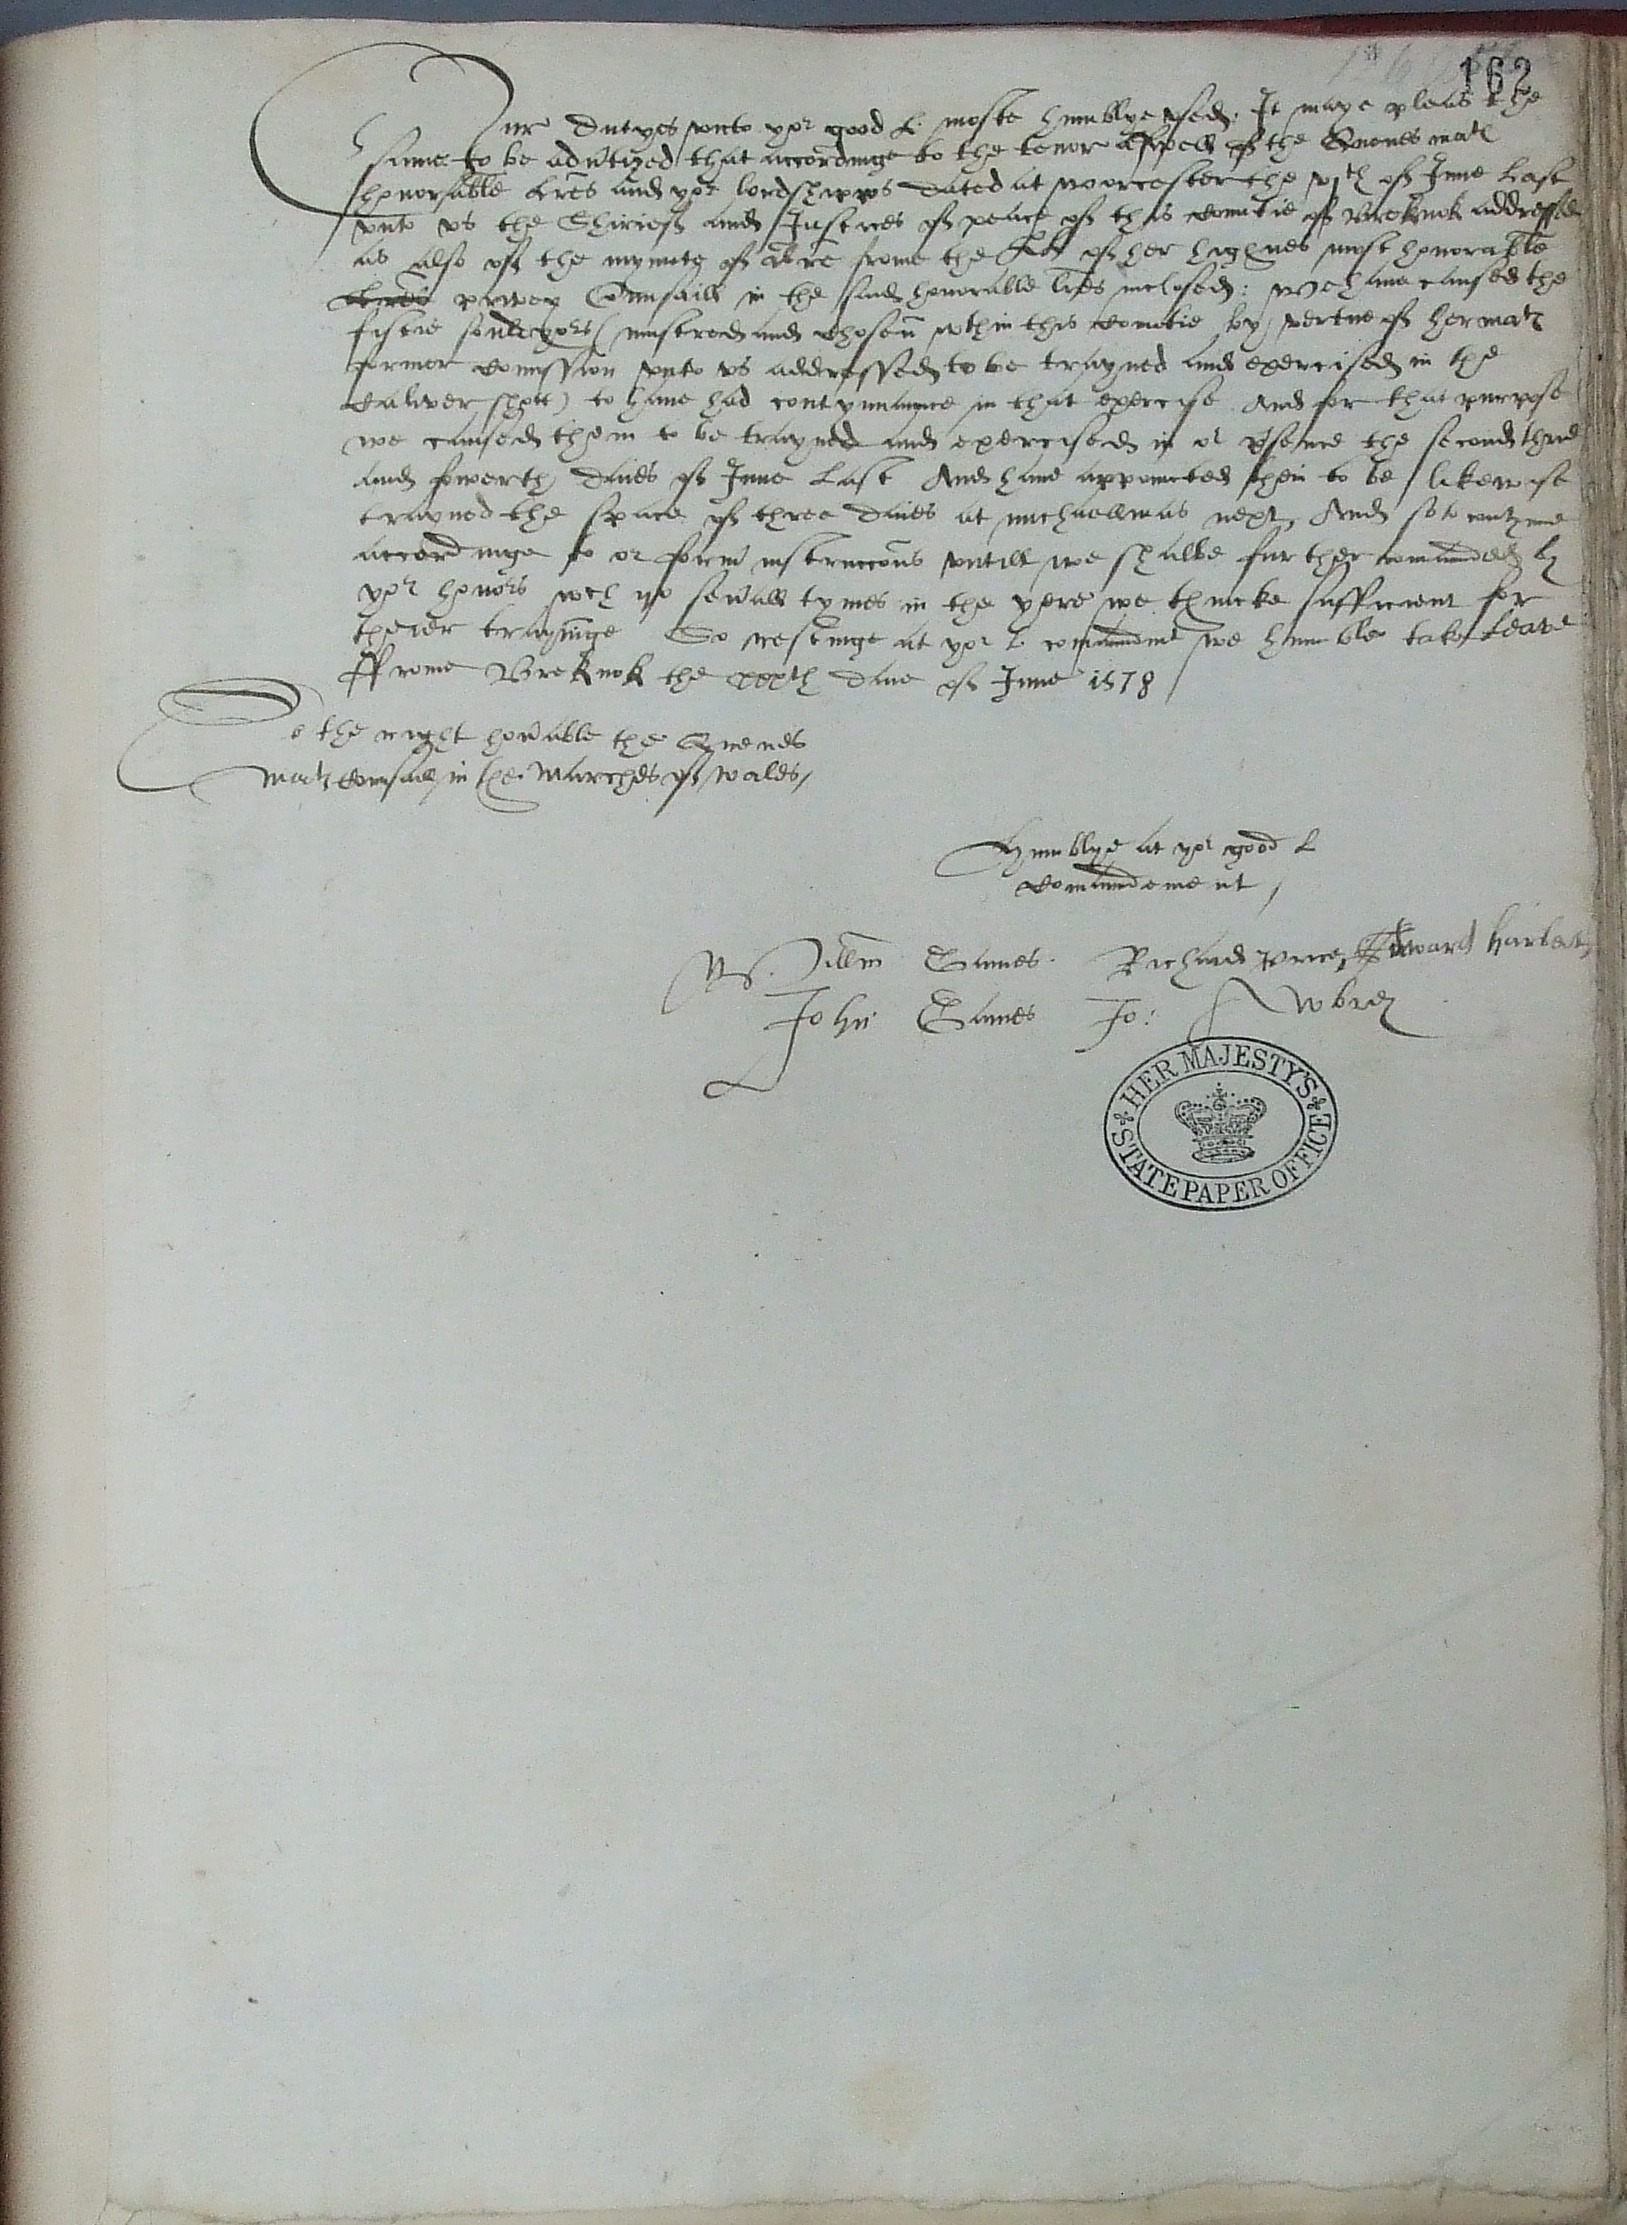 162
Our dutyes vnto yor good L. moste humblye vsed. It maye pleas the
same to be adu'tized that accordinge to the tenor of the Quenes matis
honorable l'res and yor lordshipps dated at Worcester the vjth of June last
vnto vs the Shirief and Justices of peace of this countie of Breknok addressed
as also of the mynute of a l're frome the LL of her highnes most honorable
privey Counsaill in the said honorable l'res inclosed: We have caused the
fiftie souldyors (mustred and chosen wthin this countie by vertue of her matis
former comission vnto vs addressed to be trayned and exercised in the
caliver shott) to have had contynuaunce in that exercise And for that purpose
we caused them to be trayned and exercised in or p'sence the second third
and fowerth daies of June last And have appointed them to be likewise
trayned the space of three daies at michaellmas next, And so to contynue
accordinge to or form' instruccons vntill we shalbe further comaunded by
yor honors wch ij seu'all tymes in the yere we thincke sufficient for
theier trayninge So restinge at yor L comaundmt we humble take leave
ffrome Breknok the xxxth daie of June 1578
To the right hon'able the Quenes
matis counsaill in the Marches of Wales,
Humblye at yor good L
comaundement,
Will'm Games. Richard Price, Edward Harbert,
John Games Jo: Awbrey
HER MAJESTY'S STATE PAPER OFFICE